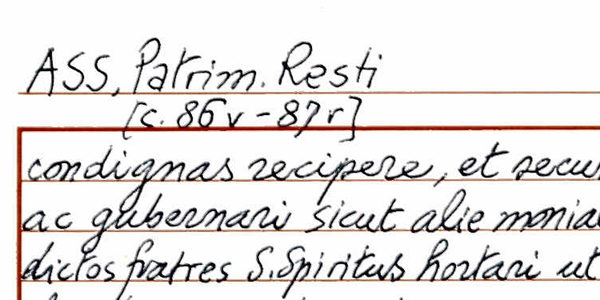 ASS, Patrim. Resti
[c. 86v-87r]
condignas recipere, et secu
ac gubernari sicut alie monia
dictos fratres S. Spiritus hortari ut